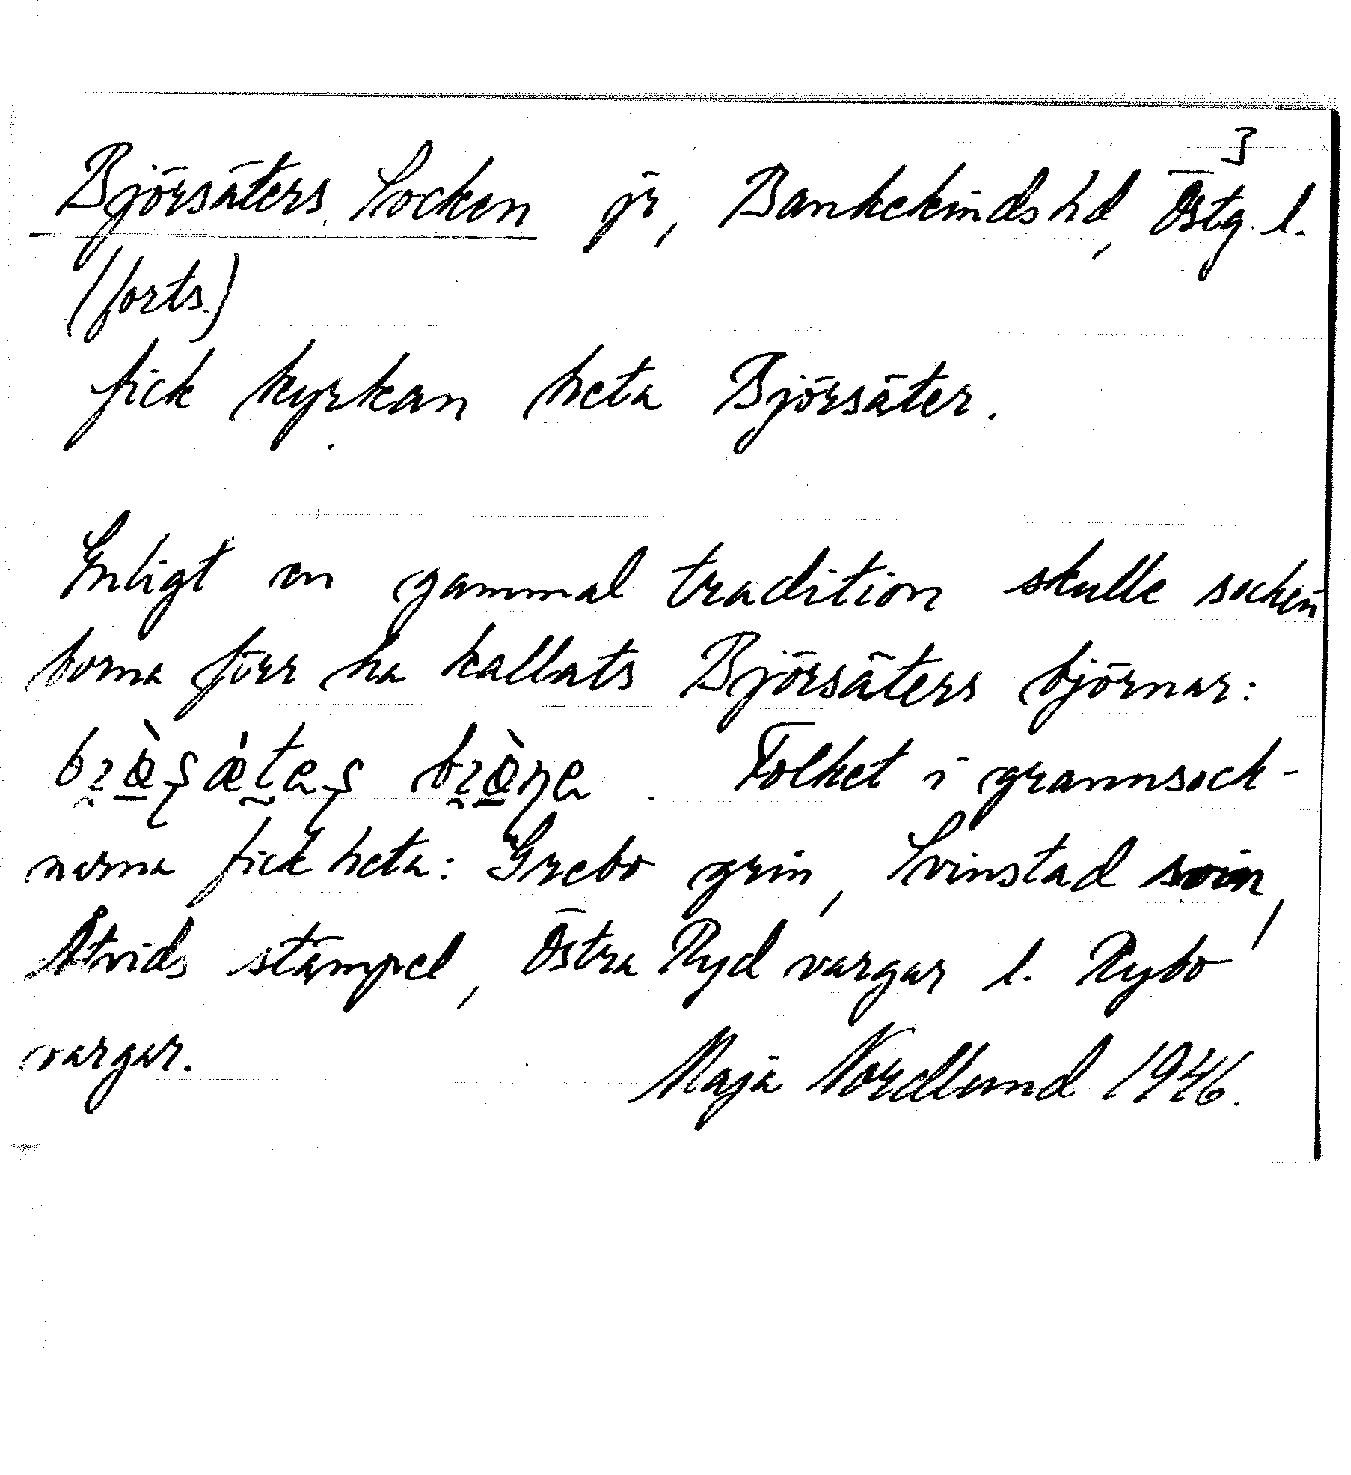 3
Björsäters Socken jr, Bankekinds hd, Östg. l.
(forts.)
fick kyrkan heta Björsäter.
Enligt en gammal tradition skulle socken
borna förr ha kallats Björsäters björnar:
Folket i grannsock-
narna fick heta: Grebo grin, Svinstad svin,
Åtvids stämpel, Östra Ryd vargar l. Rybo
vargar. Maja Nordlund 1946.